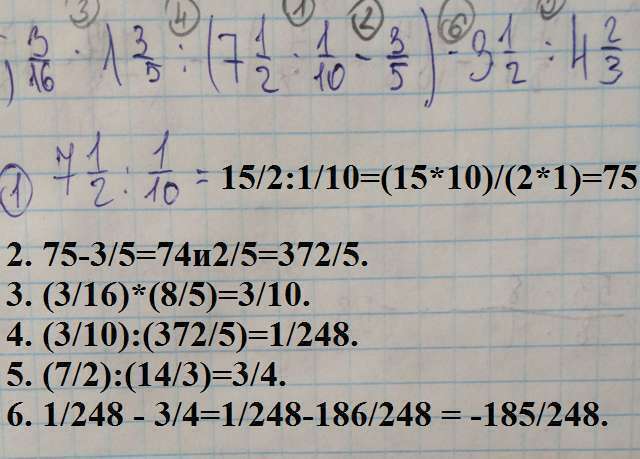 3 4 1 2 6
) 3/16 · 1 3/5 : (7 1/2 : 1/10 - 3/5) - 3 1/2 : 4 2/3
① 7 1/2 : 1/10 = 15/2:1/10=(15*10)/(2*1)=75
2. 75-3/5=74и2/5=372/5.
3. (3/16)*(8/5)=3/10.
4. (3/10):(372/5)=1/248.
5. (7/2):(14/3)=3/4.
6. 1/248 - 3/4=1/248-186/248 = -185/248.